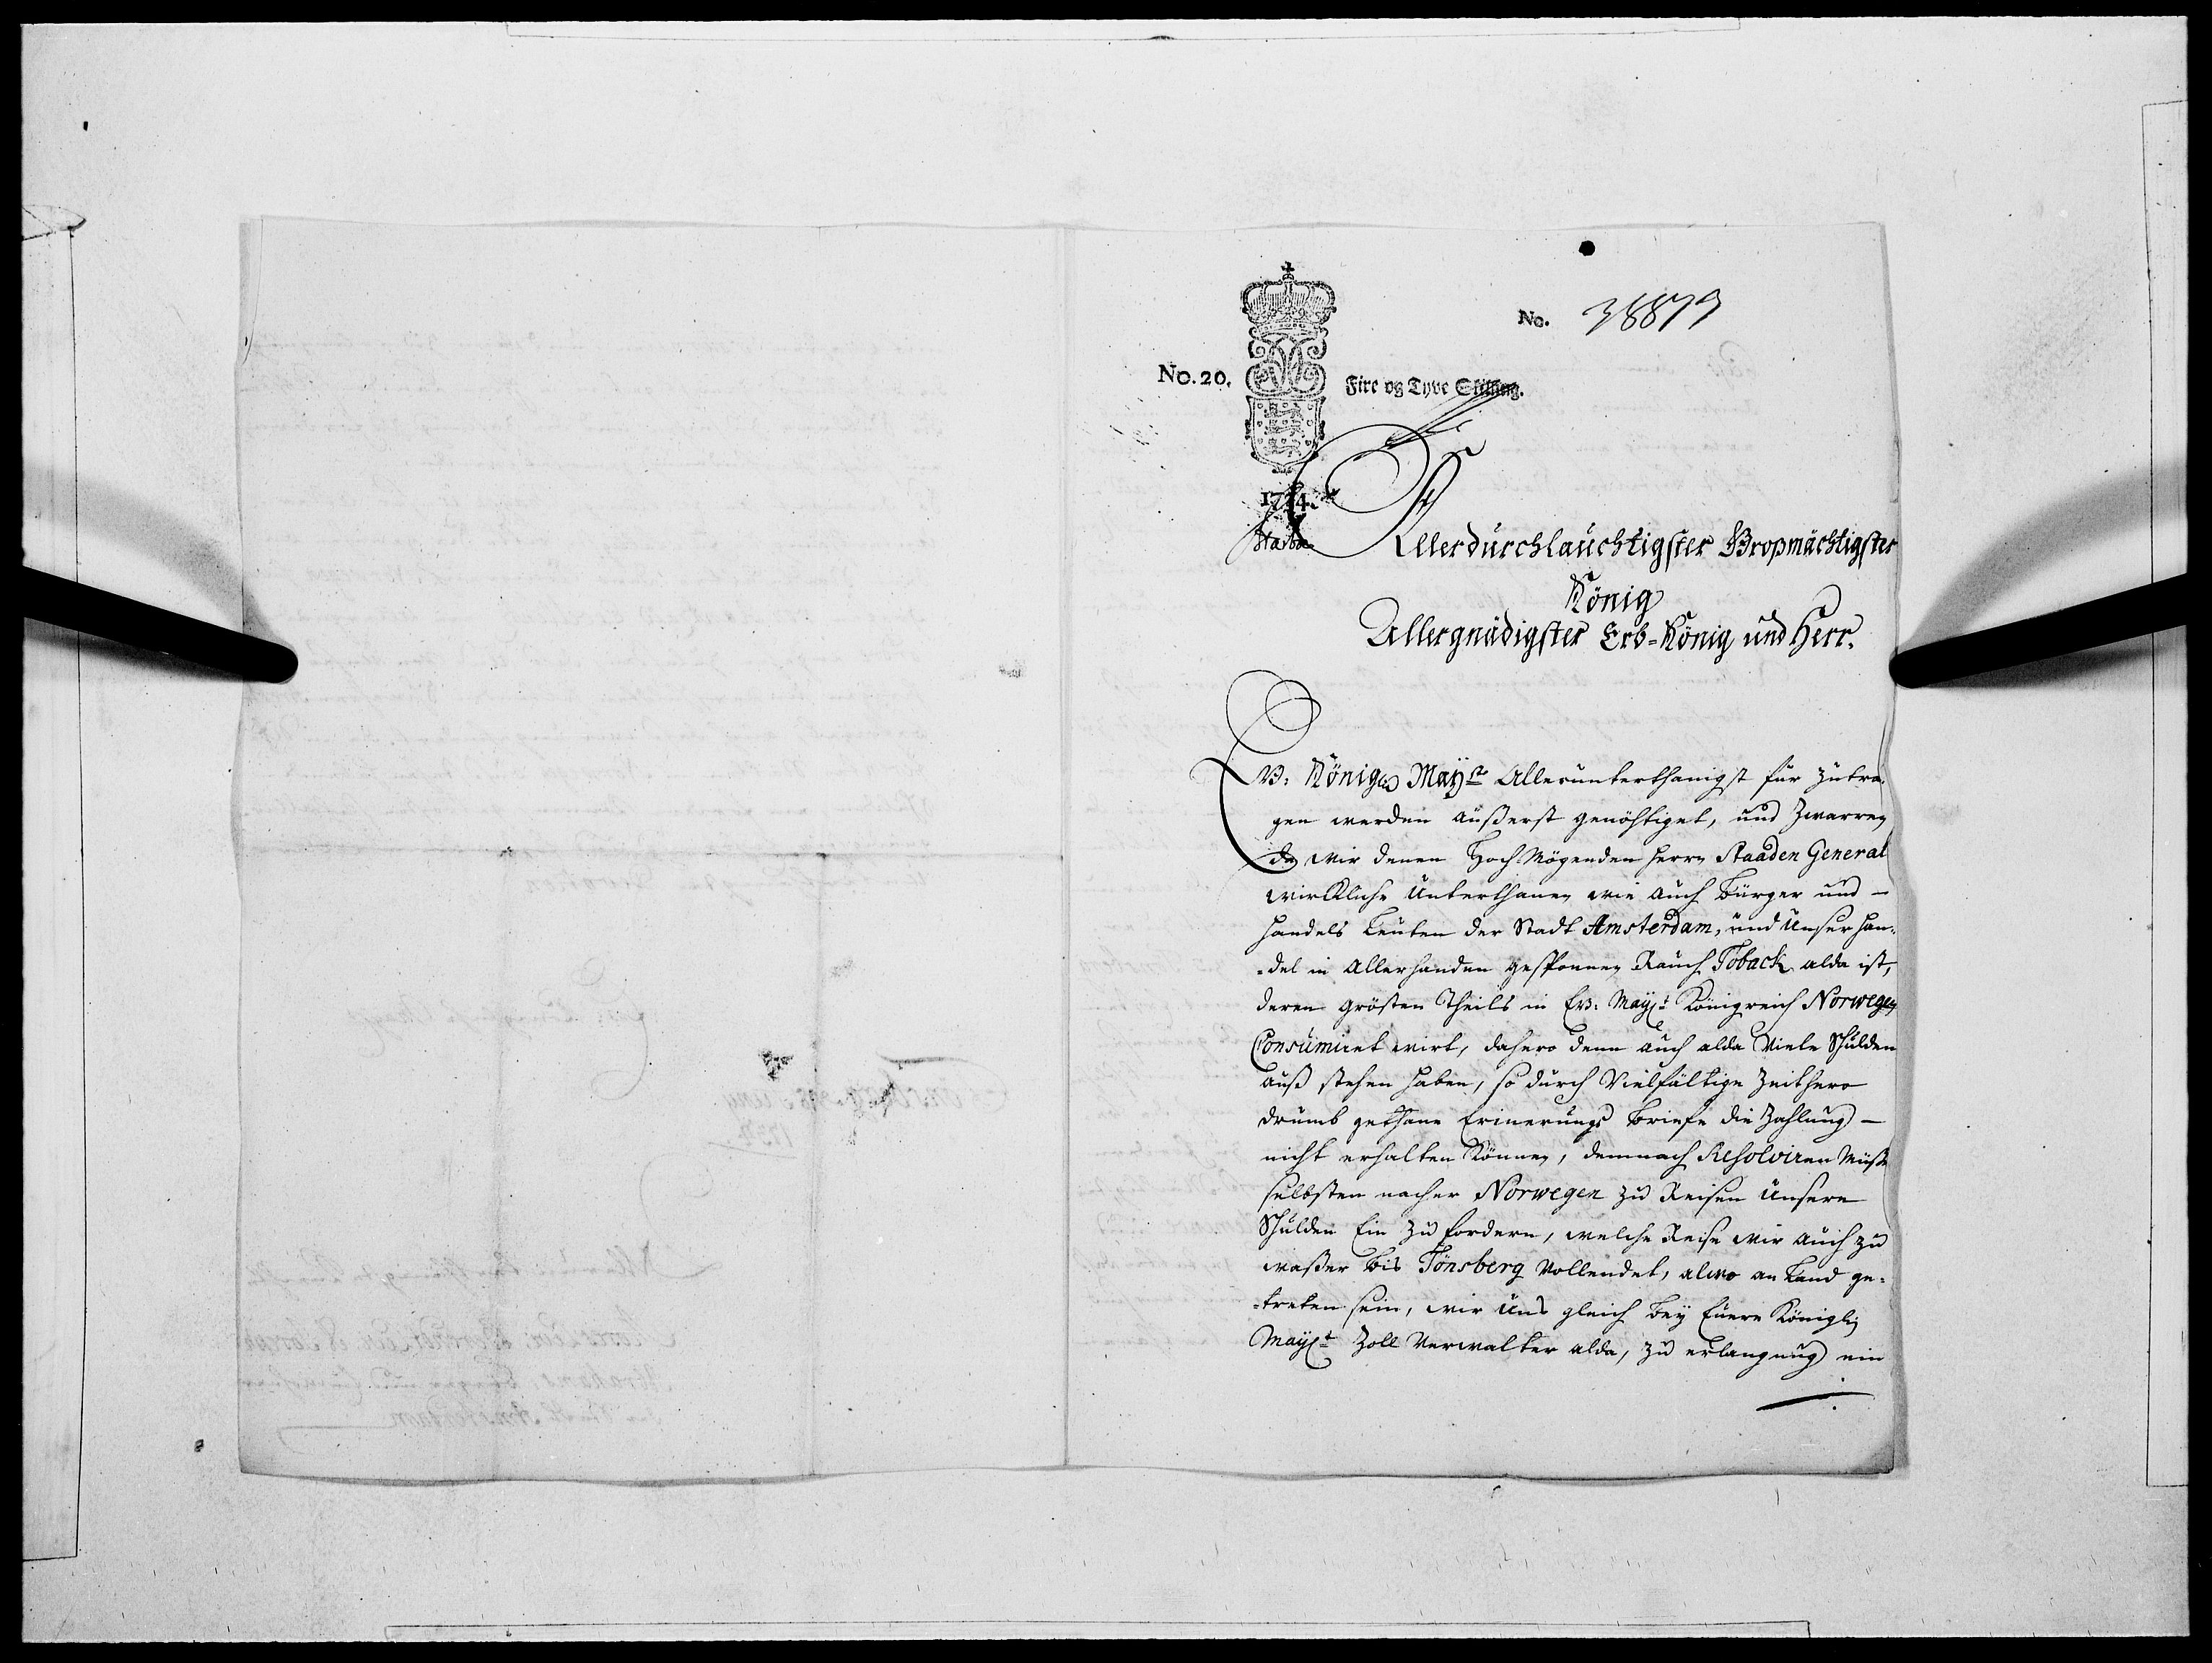 No. 38879
No. 20. Fire og Tyve Skilling.
1734.
Allerdürchlaüchtigster Großmächtigster
König
Allergnädigster Erb-König und Herr.
Ew: Königl. Mayst. Allerunterthänigst für zu tra-
gen werden äußerst genöhtiget, und zwarren
da wir denen Hoch Mögenden Herrn Staaden General
wirkliche Unterthanen wie auch Bürger und -
Handels Leuten der Stadt Amsterdam, und Unser han-
-del in Allerhanden gesponnen Rauch Toback alda ist,
deren grösten Theils in Ew: Mayst. Königreich Norwegen
Consumiret wirt, dahero denn auch alda Viele Schulden
auß stehen haben, so durch Vielfältige Zeithero
drumb gethane Erinerungs Briefe die Zahlung -
nicht erhalten können, demnach Resolviren Müße
selbsten nacher Norwegen zu Reisen Unsere
Schulden Ein zu fordern, welche Reise wir auch zu
waßer bis Tönsberg Vollendet, alwo an Land ge-
-treten sein, wir Uns gleich bey Euere Königl.
Mayst. Zoll Verwalter alda, zu erlangung ein